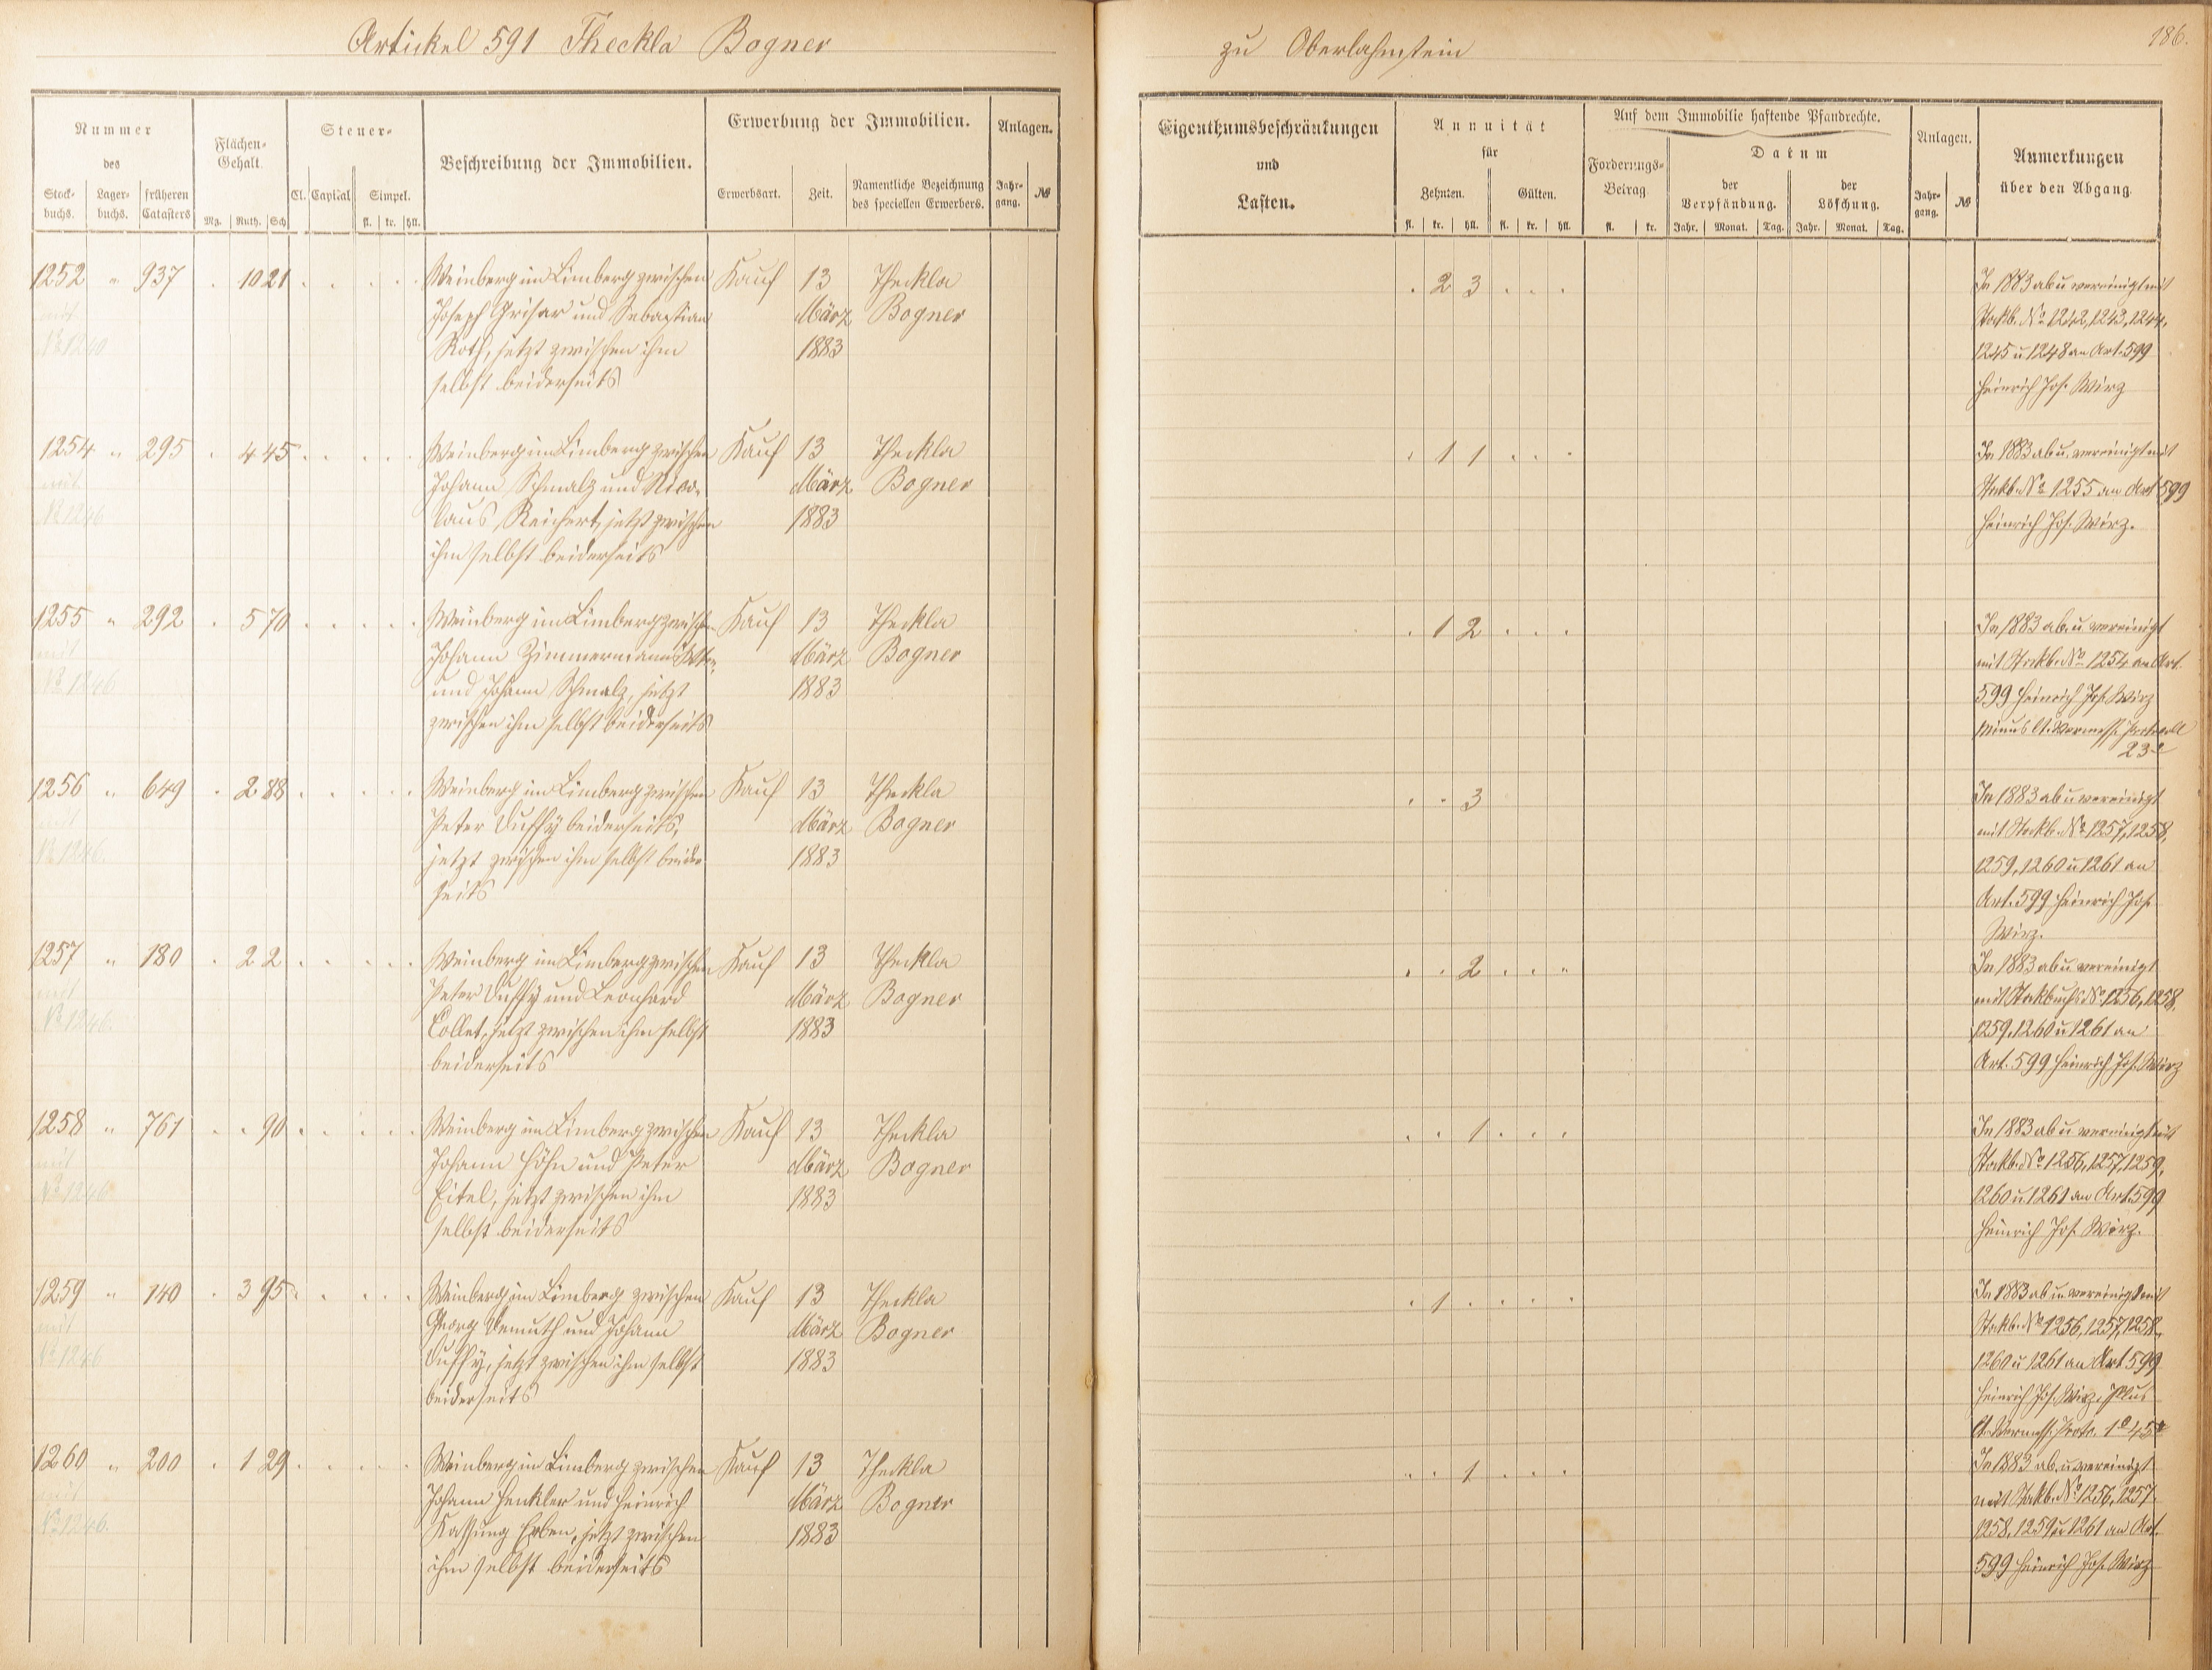 Artickel 591 Theckla Bogner
Nummer
des
Stock-
buchs.
Lager-
buchs.
früheren
Catasters
Flächen-
Gehalt.
Mg. Ruth. Sch.
Steuer-
Cl. Capital Simpel.
fl. kr. hll.
Beschreibung der Immobilien.
Erwerbung der Immobilien.
Erwerbsart. Zeit.
Namentliche Bezeichnung
des speciellen Erwerbers.
Anlagen.
Jahr-
gang.
№
1252 " 937 . 10 21 Weinberg im Limberg zwischen Kauf 13 Theckla
mit Joseph Grisar und Sebastian März Bogner
№ 1240 Roth, jetzt zwischen ihm 1883
selbst beiderseits
1254 " 295 . 4 45 Weinberg im Limberg zwischen Kauf 13 Theckla
mit Johann Schmalz und Nico- März Bogner
№ 1246 laus Reichert, jetzt zwischen 1883
ihm selbst beiderseits
1255 " 292 . 5 70 Weinberg im Limberg zwischen Kauf 13 Theckla
mit Johann Zimmermann März Bogner
№ 1246 und Johann Schmalz, jetzt 1883
zwischen ihm selbst beiderseits
1256 " 649 . 2 88 Weinberg im Limberg zwischen Kauf 13 Theckla
mit Peter Duffy beiderseits, März Bogner
№ 1246. jetzt zwischen ihm selbst beider- 1883
seits
1257 " 180 . 2 2 Weinberg im Limberg zwischen Kauf 13 Theckla
mit Peter Duffy und Leonhard März Bogner
№ 1246. Collet, jetzt zwischen ihm selbst 1883
beiderseits
1258 " 761 . . 90 Weinberg im Limberg zwischen Kauf 13 Theckla
mit Johann Höhn und Peter März Bogner
№ 1246 Eitel, jetzt zwischen ihm 1883
selbst beiderseits
1259 " 140 . 3 95 Weinberg im Limberg zwischen Kauf 13 Theckla
mit Georg Demuth und Johann März Bogner
№ 1246 Duffy, jetzt zwischen ihm selbst 1883
beiderseits
1260 " 200 . 1 29 Weinberg im Limberg zwischen Kauf 13 Theckla
mit Johann Henkler und Heinrich März Bogner
№ 1246. Erben, jetzt zwischen 1883
ihm selbst beiderseits
zu Oberlahnstein
186.
Eigenthumsbeschränkungen
und
Lasten.
Annuität
für
Zehnten. Gülten.
fl. kr. hll. fl. kr. hll.
Auf dem Immobilie haftende Pfandrechte.
Forderungs-
Betrag
fl. kr.
Datum
der
Verpfändung.
der
Löschung.
Jahr. Monat. Tag. Jahr. Monat. Tag.
Anlagen.
Jahr-
gang.
№
Anmerkungen
über den Abgang
. 2 3 . . . In 1883 ab u vereinigt mit
Stockb. № 1242, 1243, 1244,
1245 u 1248 an Art. 599
Heinrich Jos. Wirz
. 1 1 . . . In 1883 ab u. vereinigt mit
Stockb. № 1255 an Art 599
Heinrich Jos. Wirz.
. 1 2 . . . In 1883 ab u vereinigt
mit Stockb. № 1254 an Art.
599 Heinrich Jos. Wirz
minus lt. Vermess. Protocoll
23
. . 3 In 1883 ab u vereinigt
mit Stockb. № 1257, 1258,
1259, 1260 u 1261 an
Art. 599 Heinrich Jos.
Wirz.
. . 2 . . . In 1883 ab u vereinigt
mit Stockbuchs № 1256, 1258,
1259, 1260 u 1261 an
Art. 599 Heinrich Jos. Wirz
. . 1 . . . In 1883 ab u vereinigt mit
Stockb. № 1256, 1257, 1259,
1260 u. 1261 an Art. 599
Heinrich Jos. Wirz.
. 1 . . . . In 1883 ab u vereinigt mit
Stockb. № 1256, 1257, 1258,
1260 u 1261 an Art 599
Heinrich Jos. Wirz, Plus
lt. Vermess. Proto. 1 45
. . 1 . . . In 1883 ab u vereinigt
mit Stockb. № 1256, 1257
1258, 1259 u 1261 an Art.
599 Heinrich Jos. Wirz